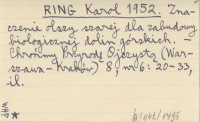 RING Karol 1952. Zna-
czenie olszy szarej dla zabudowy
biologicznej dolin górskich. —
Chrońmy Przyrodę Ojczystą (War-
szawa-Kraków) 8, nr 6: 20-33,
il.